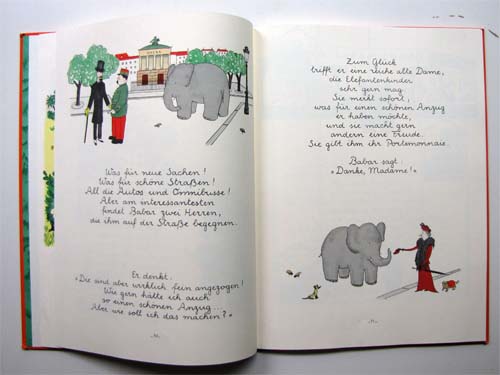 OPERA
Was für neue Sachen!
Was für schöne Straßen!
All die Autos und Omnibusse!
Aber am interessantesten
findet Babar zwei Herren,
die ihm auf der Straße begegnen.
Er denkt:
"Die sind aber wirklich fein angezogen!
Wie gern hätte ich auch
so einen schönen Anzug...
Aber wie soll ich das machen?"
Zum Glück
trifft er eine reiche alte Dame,
die Elefantenkinder
sehr gern mag.
Sie merkt sofort,
was für einen schönen Anzug
er haben möchte,
und sie macht gern
andern eine Freude.
Sie gibt ihm ihr Portemonnaie.
Babar sagt:
"Danke, Madame!"